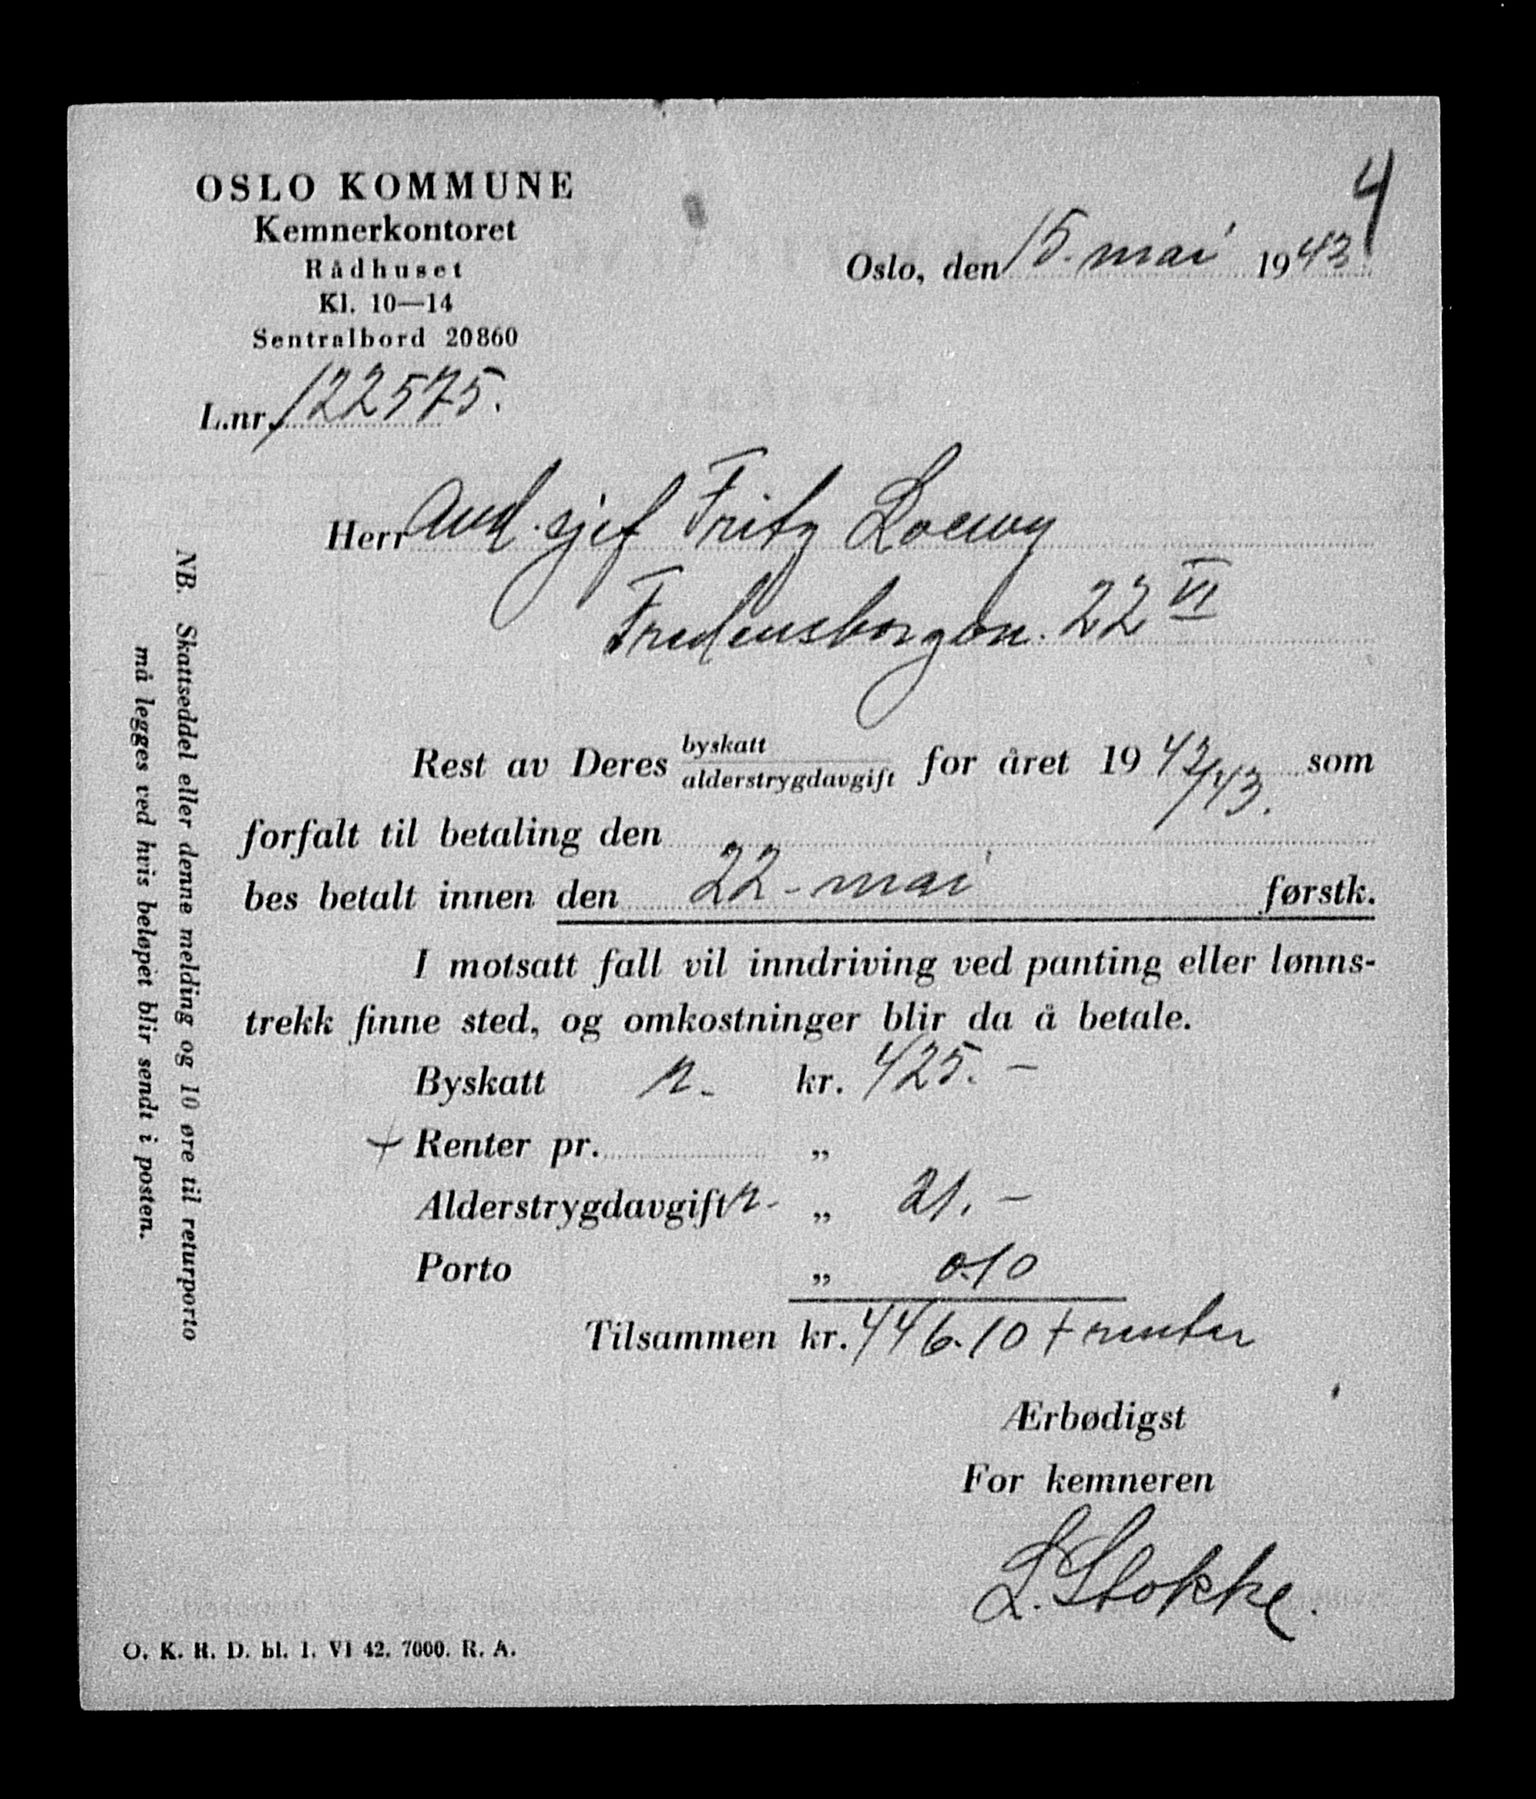 4
OSLO KOMMUNE
Kemnerkontoret
Rådhuset
Kl. 10—14
Sentralbord 20860
Oslo, den 15. mai 1943
L.nr. 122575.
Herr avd. sjef Fritz Loewy
Fredensborgvn. 22 VI
Rest av Deres byskatt
alderstrygdavgift for året 1942/43. som
forfalt til betaling den
bes betalt innen den 22. mai førstk.
I motsatt fall vil inndriving ved panting eller lønns-
trekk finne sted, og omkostninger blir da å betale.
Byskatt r. kr. 425. —
+ Renter pr. „
Alderstrygdavgift r. „ 21. —
Porto „ 0.10
Tilsammen kr. 446.10 + renter
Ærbødigst
For kemneren
L. Stokke.
O. K. R. D. bl. 1. VI 42. 7000. R. A.
NB. Skattseddel eller denne melding og 10 øre til returporto
må legges ved hvis beløpet blir sendt i posten.